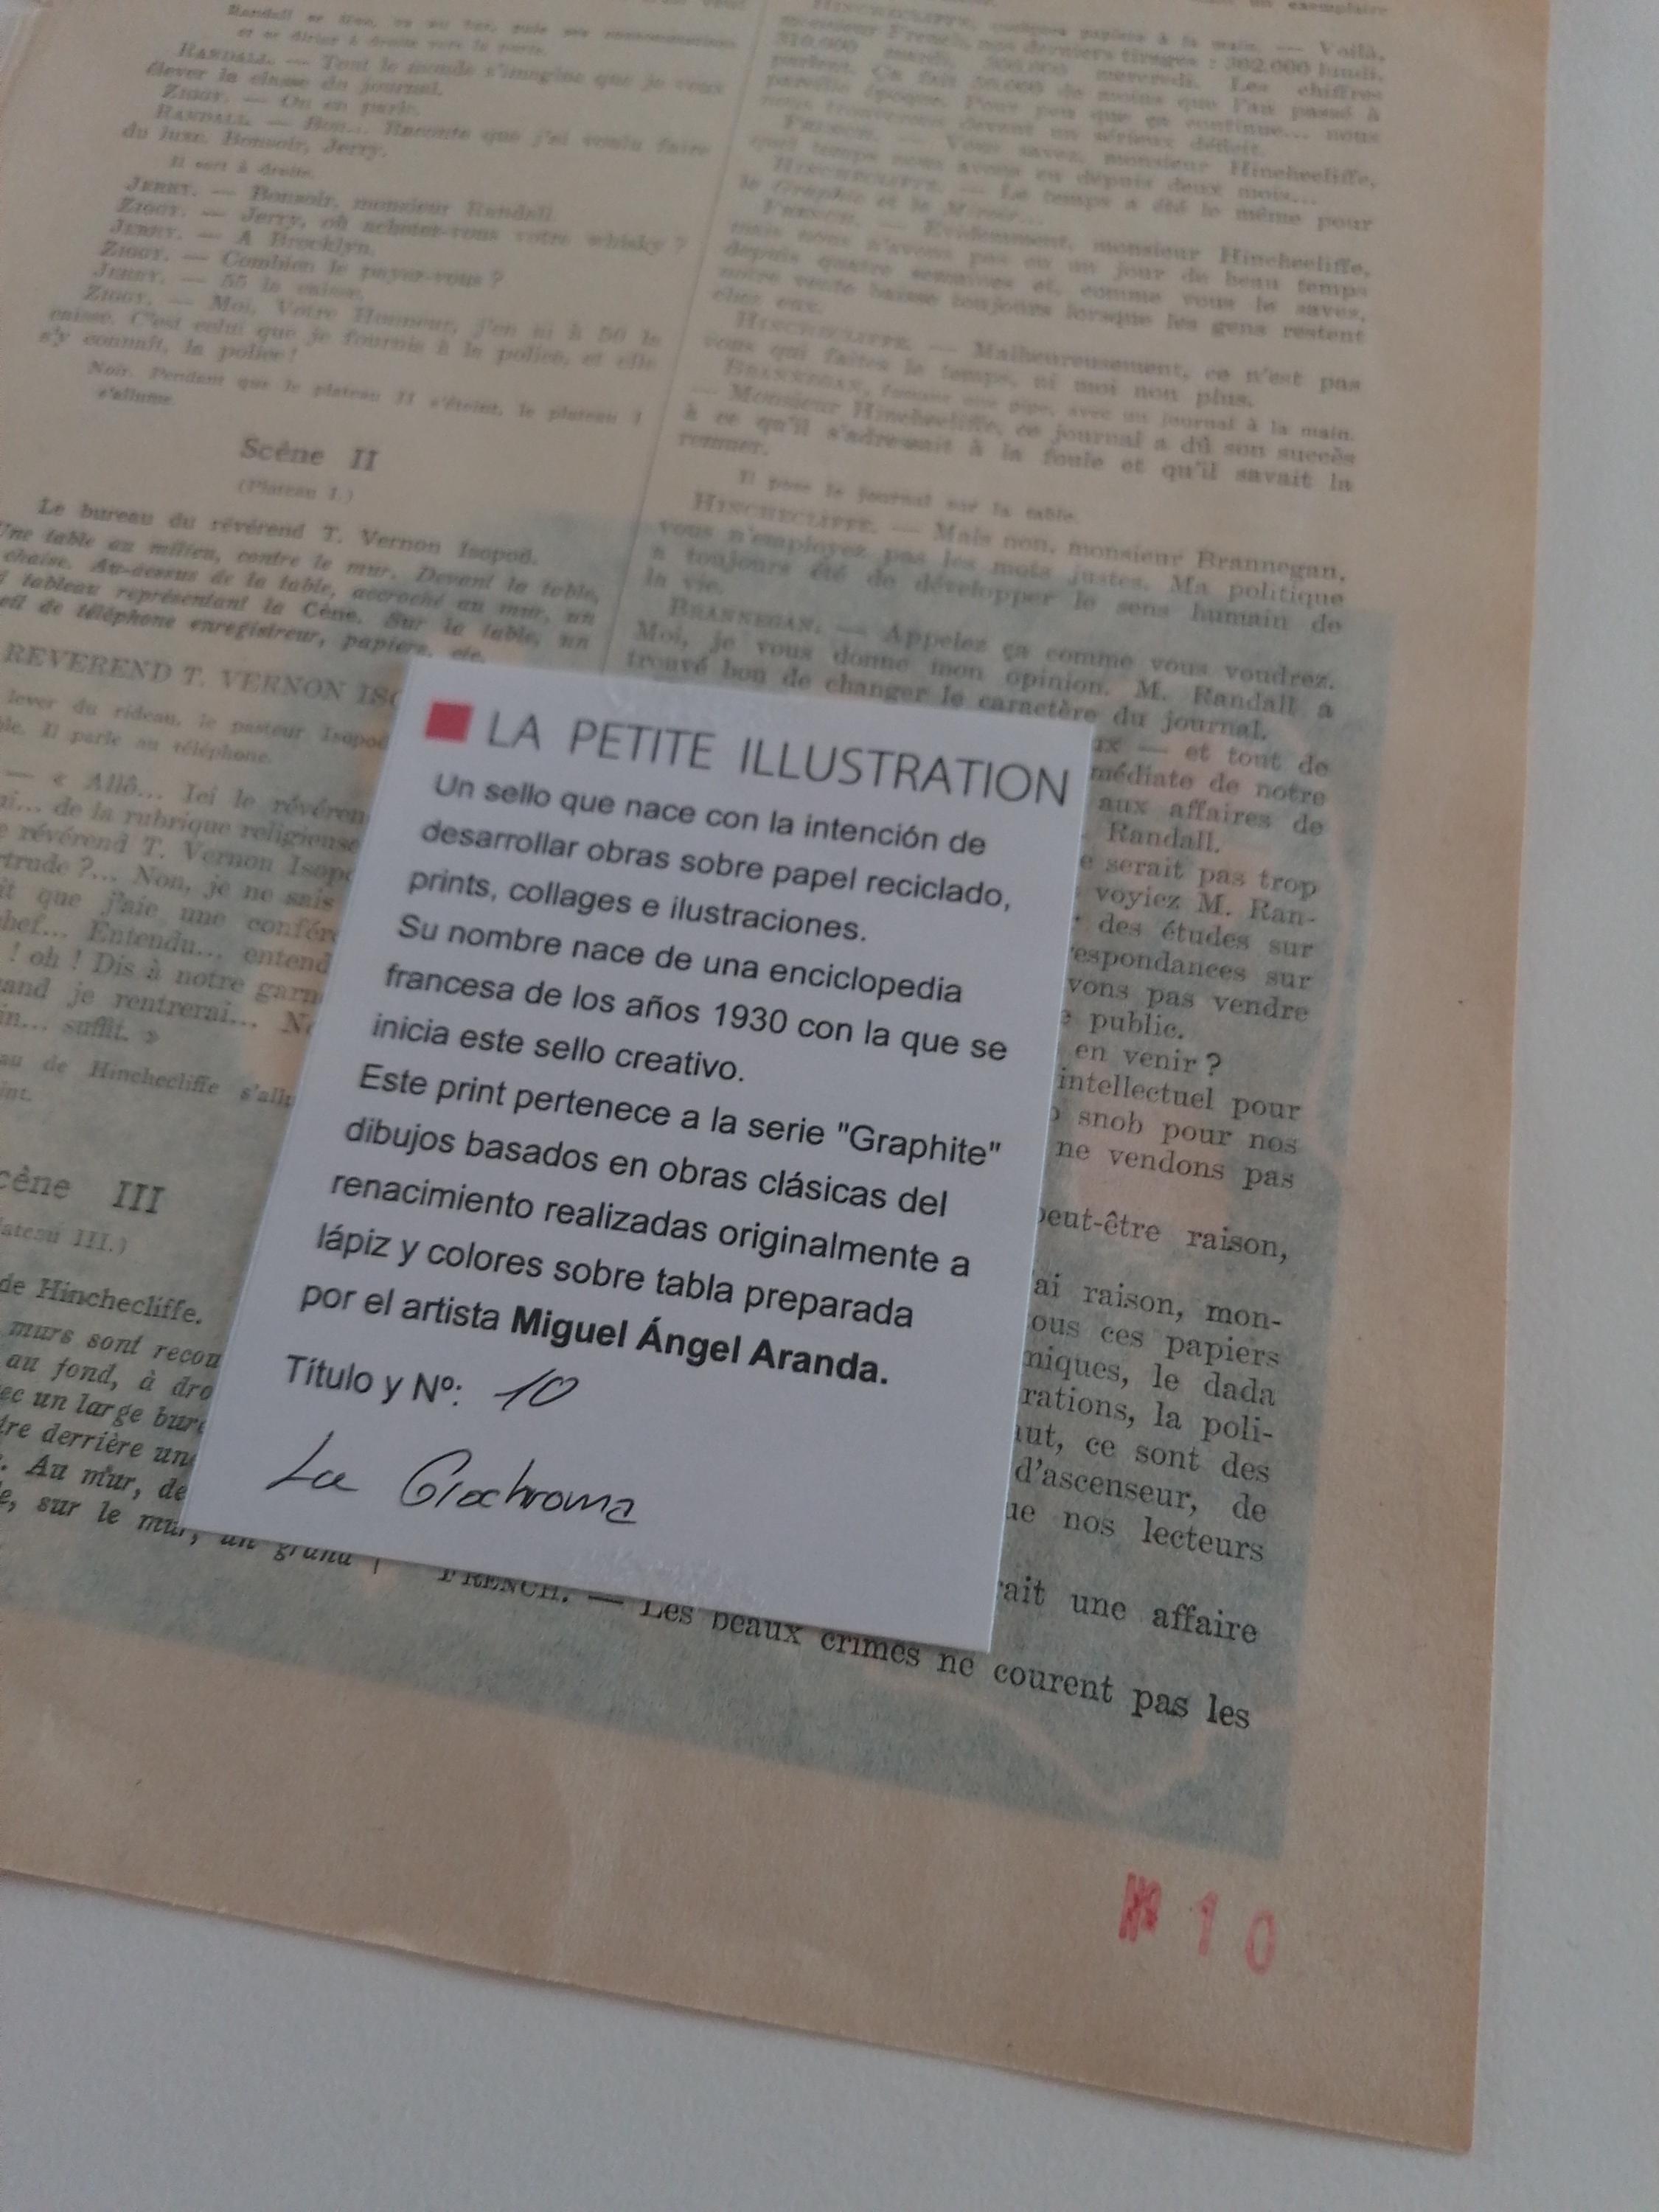 RANDALL. — Tout le monde s'imagine que je veux
élever la classe du journal.
ZIGGY. — On en parle.
RANDALL. — Bon... Raconte que j'ai voulu faire
du luxe. Bonsoir, Jerry.
Il sort à droite.
JERRY. — Bonsoir, monsieur Randall.
ZIGGY. — Jerry, où achetez-vous votre whisky ?
JERRY. — A Brooklyn.
ZIGGY. — Combien le payez-vous ?
JERRY. — 55 la caisse.
ZIGGY. — Moi, Votre Honneur, j'en ai à 50 la
caisse. C'est celui que je fournis à la police, et elle
s'y connaît, la police !
Noir. Pendant que le plateau II s'éteint, le plateau I
s'allume.
Scène II
(Plateau I.)
Le bureau du révérend T. Vernon Isopod.
Une table au milieu, contre le mur. Devant la table,
chaise. Au-dessus de la table, accroché au mur, un
tableau représentant la Cène. Sur la table, un
de téléphone enregistreur, papiers, etc.
REVEREND T. VERNON
lever du rideau, le pasteur
Il parle au téléphone.
— « Allô... Ici le
de la rubrique religieuse
révérend T. Vernon
Non, je ne sais
que j'aie une
Entendu...
! oh ! Dis à notre
je rentrerai...
suffit. »
de Hinchecliffe
III
III.)
de Hinchecliffe.
murs sont
au fond, à
un large
derrière
Au mur, de
sur le mur, un grand
HINCHECLIFFE, quelques papiers à la main. — Voilà,
monsieur French, nos derniers tirages : 302.000 lundi,
310.000 mardi, 308.000 mercredi. Les chiffres
parlent. Ça fait 50.000 de moins que l'an passé à
pareille époque. Pour peu que ça continue... nous
nous trouverons devant un sérieux déficit.
FRENCH. — Vous savez, monsieur Hinchecliffe,
quel temps nous avons eu depuis deux mois...
HINCHECLIFFE. — Le temps a été le même pour
le Graphic et le Mirror...
FRENCH. — Evidemment, monsieur Hinchecliffe,
mais nous n'avons pas eu un jour de beau temps
depuis quatre semaines et, comme vous le savez,
notre vente baisse toujours lorsque les gens restent
chez eux.
HINCHECLIFFE. — Malheureusement, ce n'est pas
vous qui faites le temps, ni moi non plus.
BRANNEGAN, fumant une pipe, avec un journal à la main.
— Monsieur Hinchecliffe, ce journal a dû son succès
à ce qu'il s'adressait à la foule et qu'il savait la
remuer.
Il pose le journal sur la table.
HINCHECLIFFE. — Mais non, monsieur Brannegan,
vous n'employez pas les mots justes. Ma politique
a toujours été de développer le sens humain de
la vie.
BRANNEGAN. — Appelez ça comme vous voudrez.
Moi, je vous donne mon opinion. M. Randall a
trouvé bon de changer le caractère du journal.
— et tout de
de notre
aux affaires de
Randall.
serait pas trop
voyiez M. Ran-
des études sur
sur
pas vendre
public.
en venir ?
intellectuel pour
snob pour nos
ne vendons pas
raison,
raison, mon-
ces papiers
le dada
la poli-
ce sont des
d'ascenseur, de
nos lecteurs
une affaire
FRENCH. — Les beaux crimes ne courent pas les
LA PETITE ILLUSTRATION
Un sello que nace con la intención de
desarrollar obras sobre papel reciclado,
prints, collages e ilustraciones.
Su nombre nace de una enciclopedia
francesa de los años 1930 con la que se
inicia este sello creativo.
Este print pertenece a la serie "Graphite"
dibujos basados en obras clásicas del
renacimiento realizadas originalmente a
lápiz y colores sobre tabla preparada
por el artista Miguel Ángel Aranda.
Título y Nº: 10
La
Nº 10